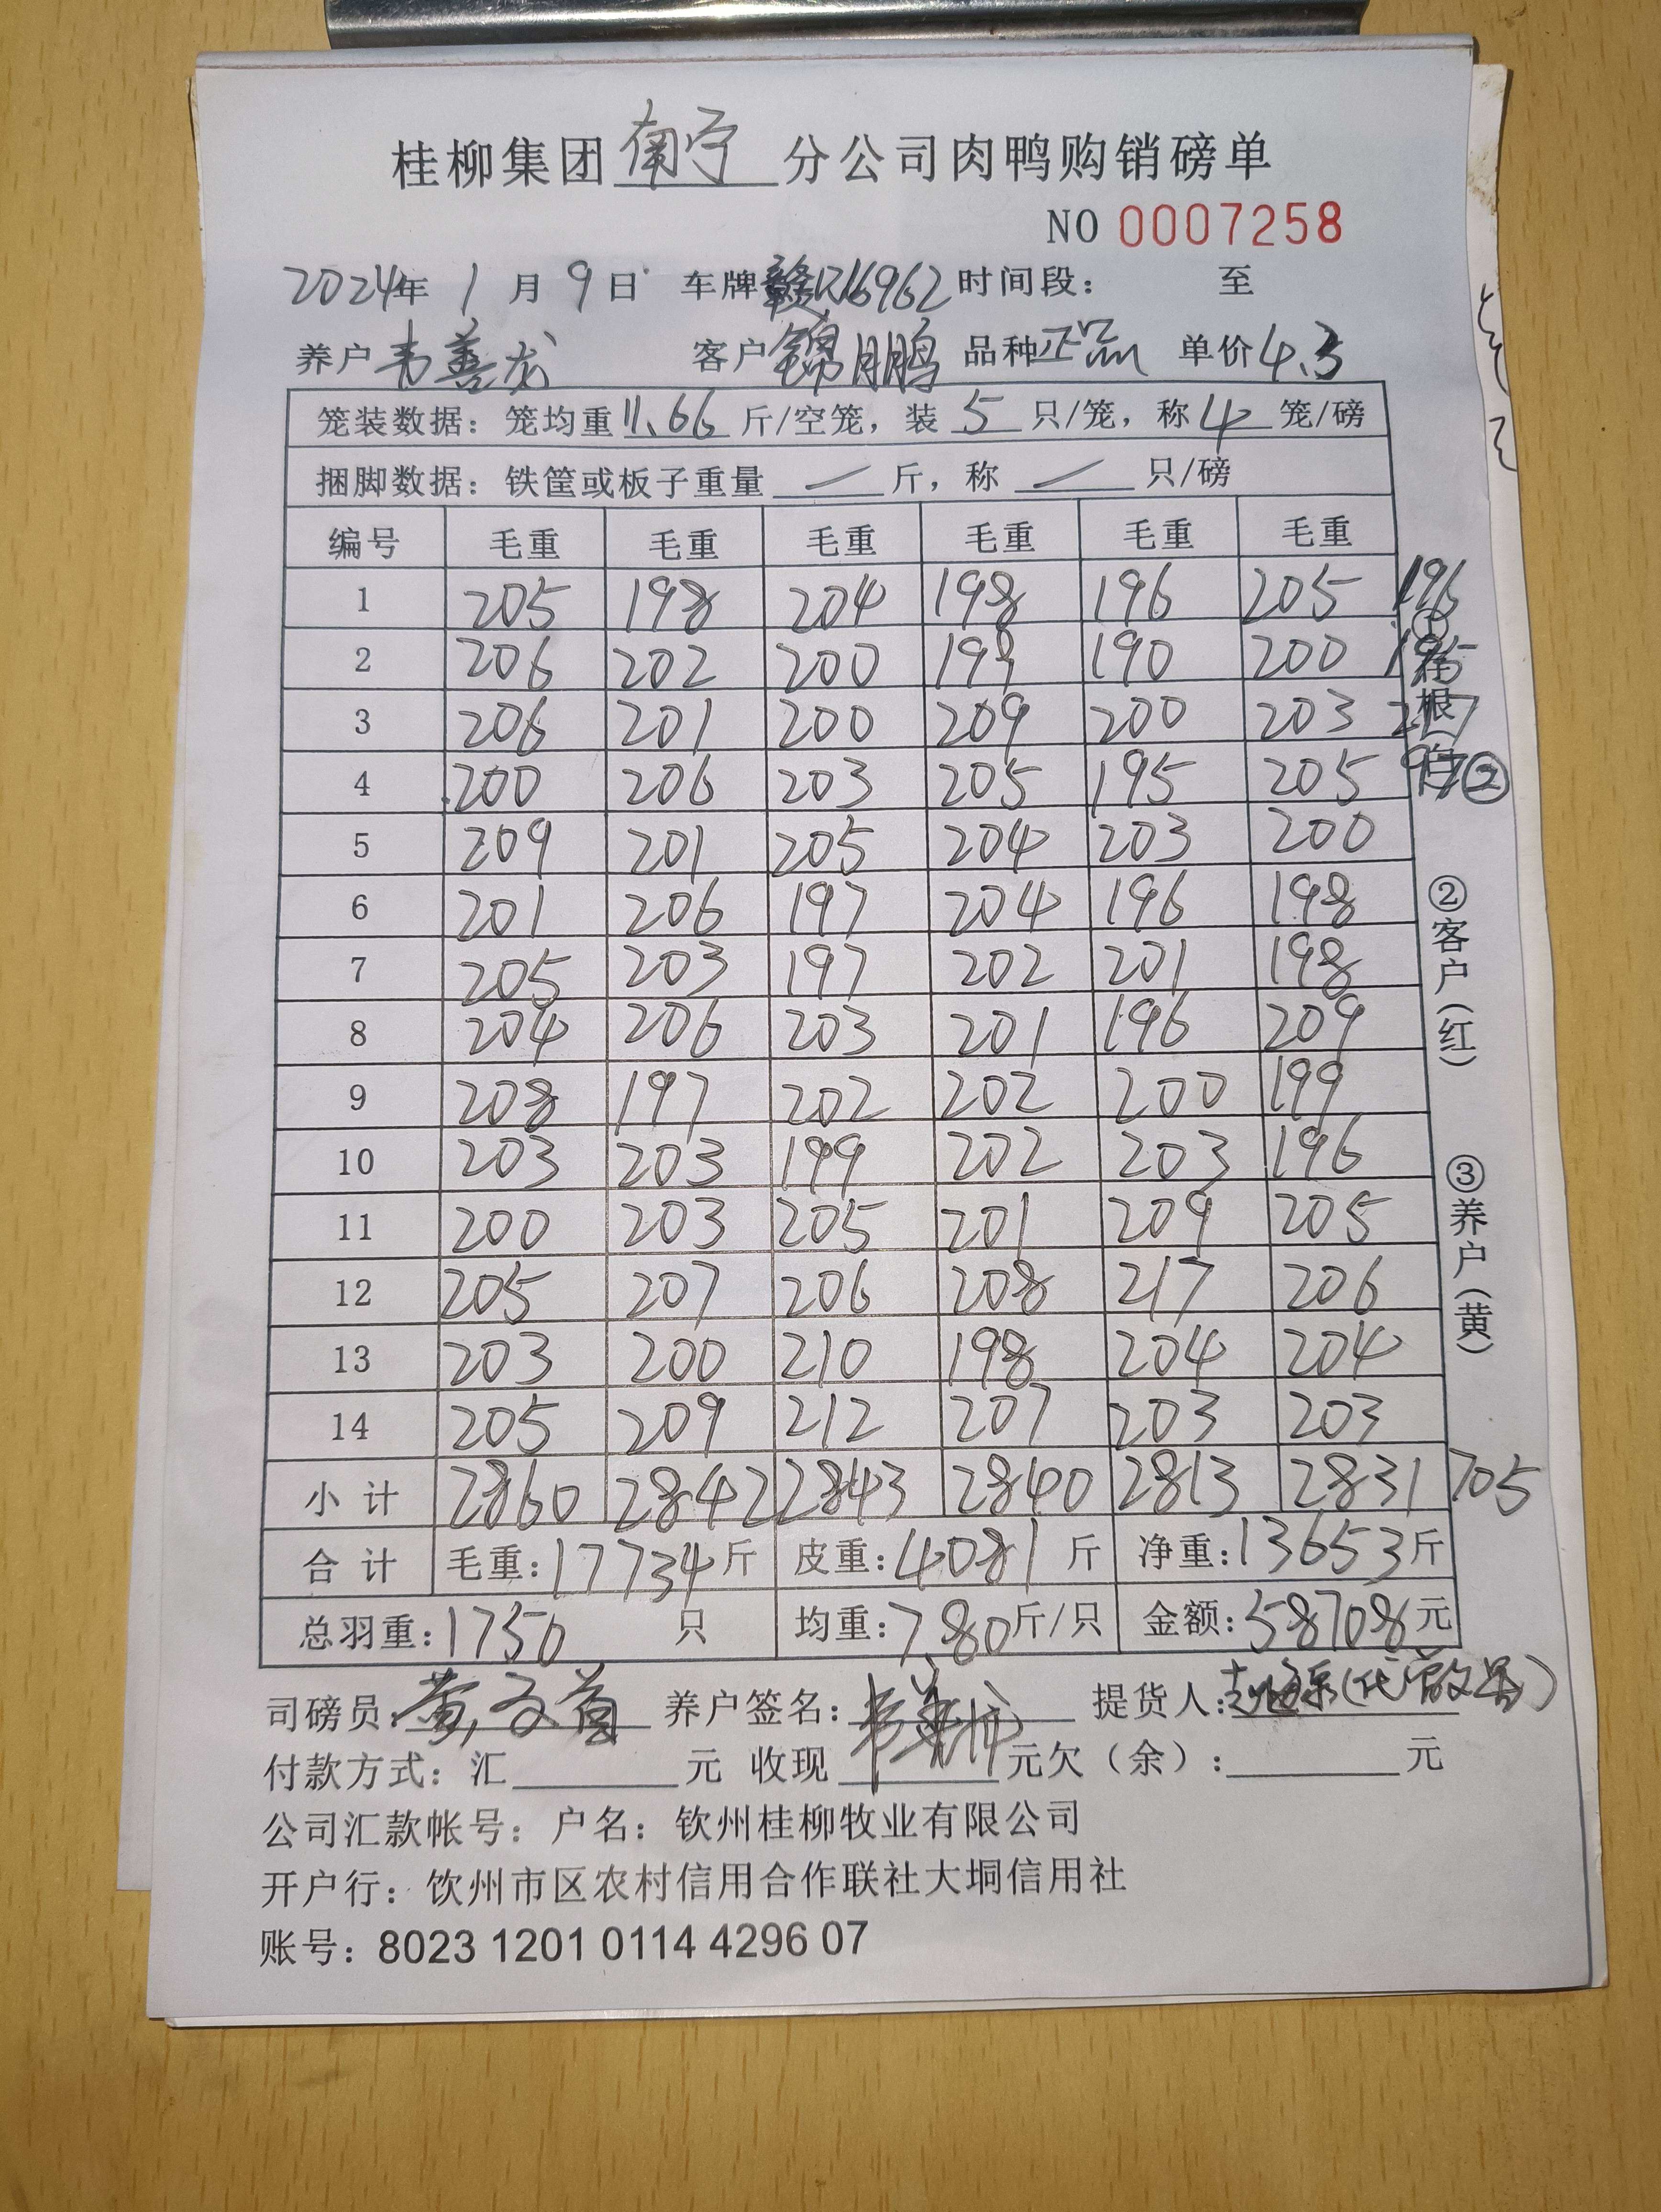 桂柳集团南宁分公司肉鸭购销磅单
NO 0007258
2024年 1 月 9 日 车牌赣 16962 时间段： 至
养户韦善龙 客户锦鹏 品种正品 单价4.3
笼装数据：笼均重11.66斤/空笼，装5只/笼，称4笼/磅
捆脚数据：铁筐或板子重量 / 斤，称 / 只/磅
编号 毛重 毛重 毛重 毛重 毛重 毛重
1 205 198 204 198 196 205 196
2 206 202 200 199 190 200 195
3 206 201 200 209 200 203 217
4 200 206 203 205 195 205 97②
5 209 201 205 204 203 200
6 201 206 197 204 196 198
7 205 203 197 202 201 198
8 204 206 203 201 196 209
9 208 197 202 202 200 199
10 203 203 199 202 203 196
11 200 203 205 201 209 205
12 205 207 206 208 217 206
13 203 200 210 198 204 204
14 205 209 212 207 203 203
小计 2860 2842 2843 2840 2813 2831 705
合计 毛重：17734斤 皮重：4081斤 净重：13653斤
总羽重：1750只 均重：7.80斤/只 金额：58708元
①存根（白）
②客户（红）
③养户（黄）
司磅员：黄 首 养户签名： 提货人：
付款方式：汇 元 收现 元欠（余）： 元
公司汇款帐号：户名：钦州桂柳牧业有限公司
开户行：饮州市区农村信用合作联社大垌信用社
账号：8023 1201 0114 4296 07